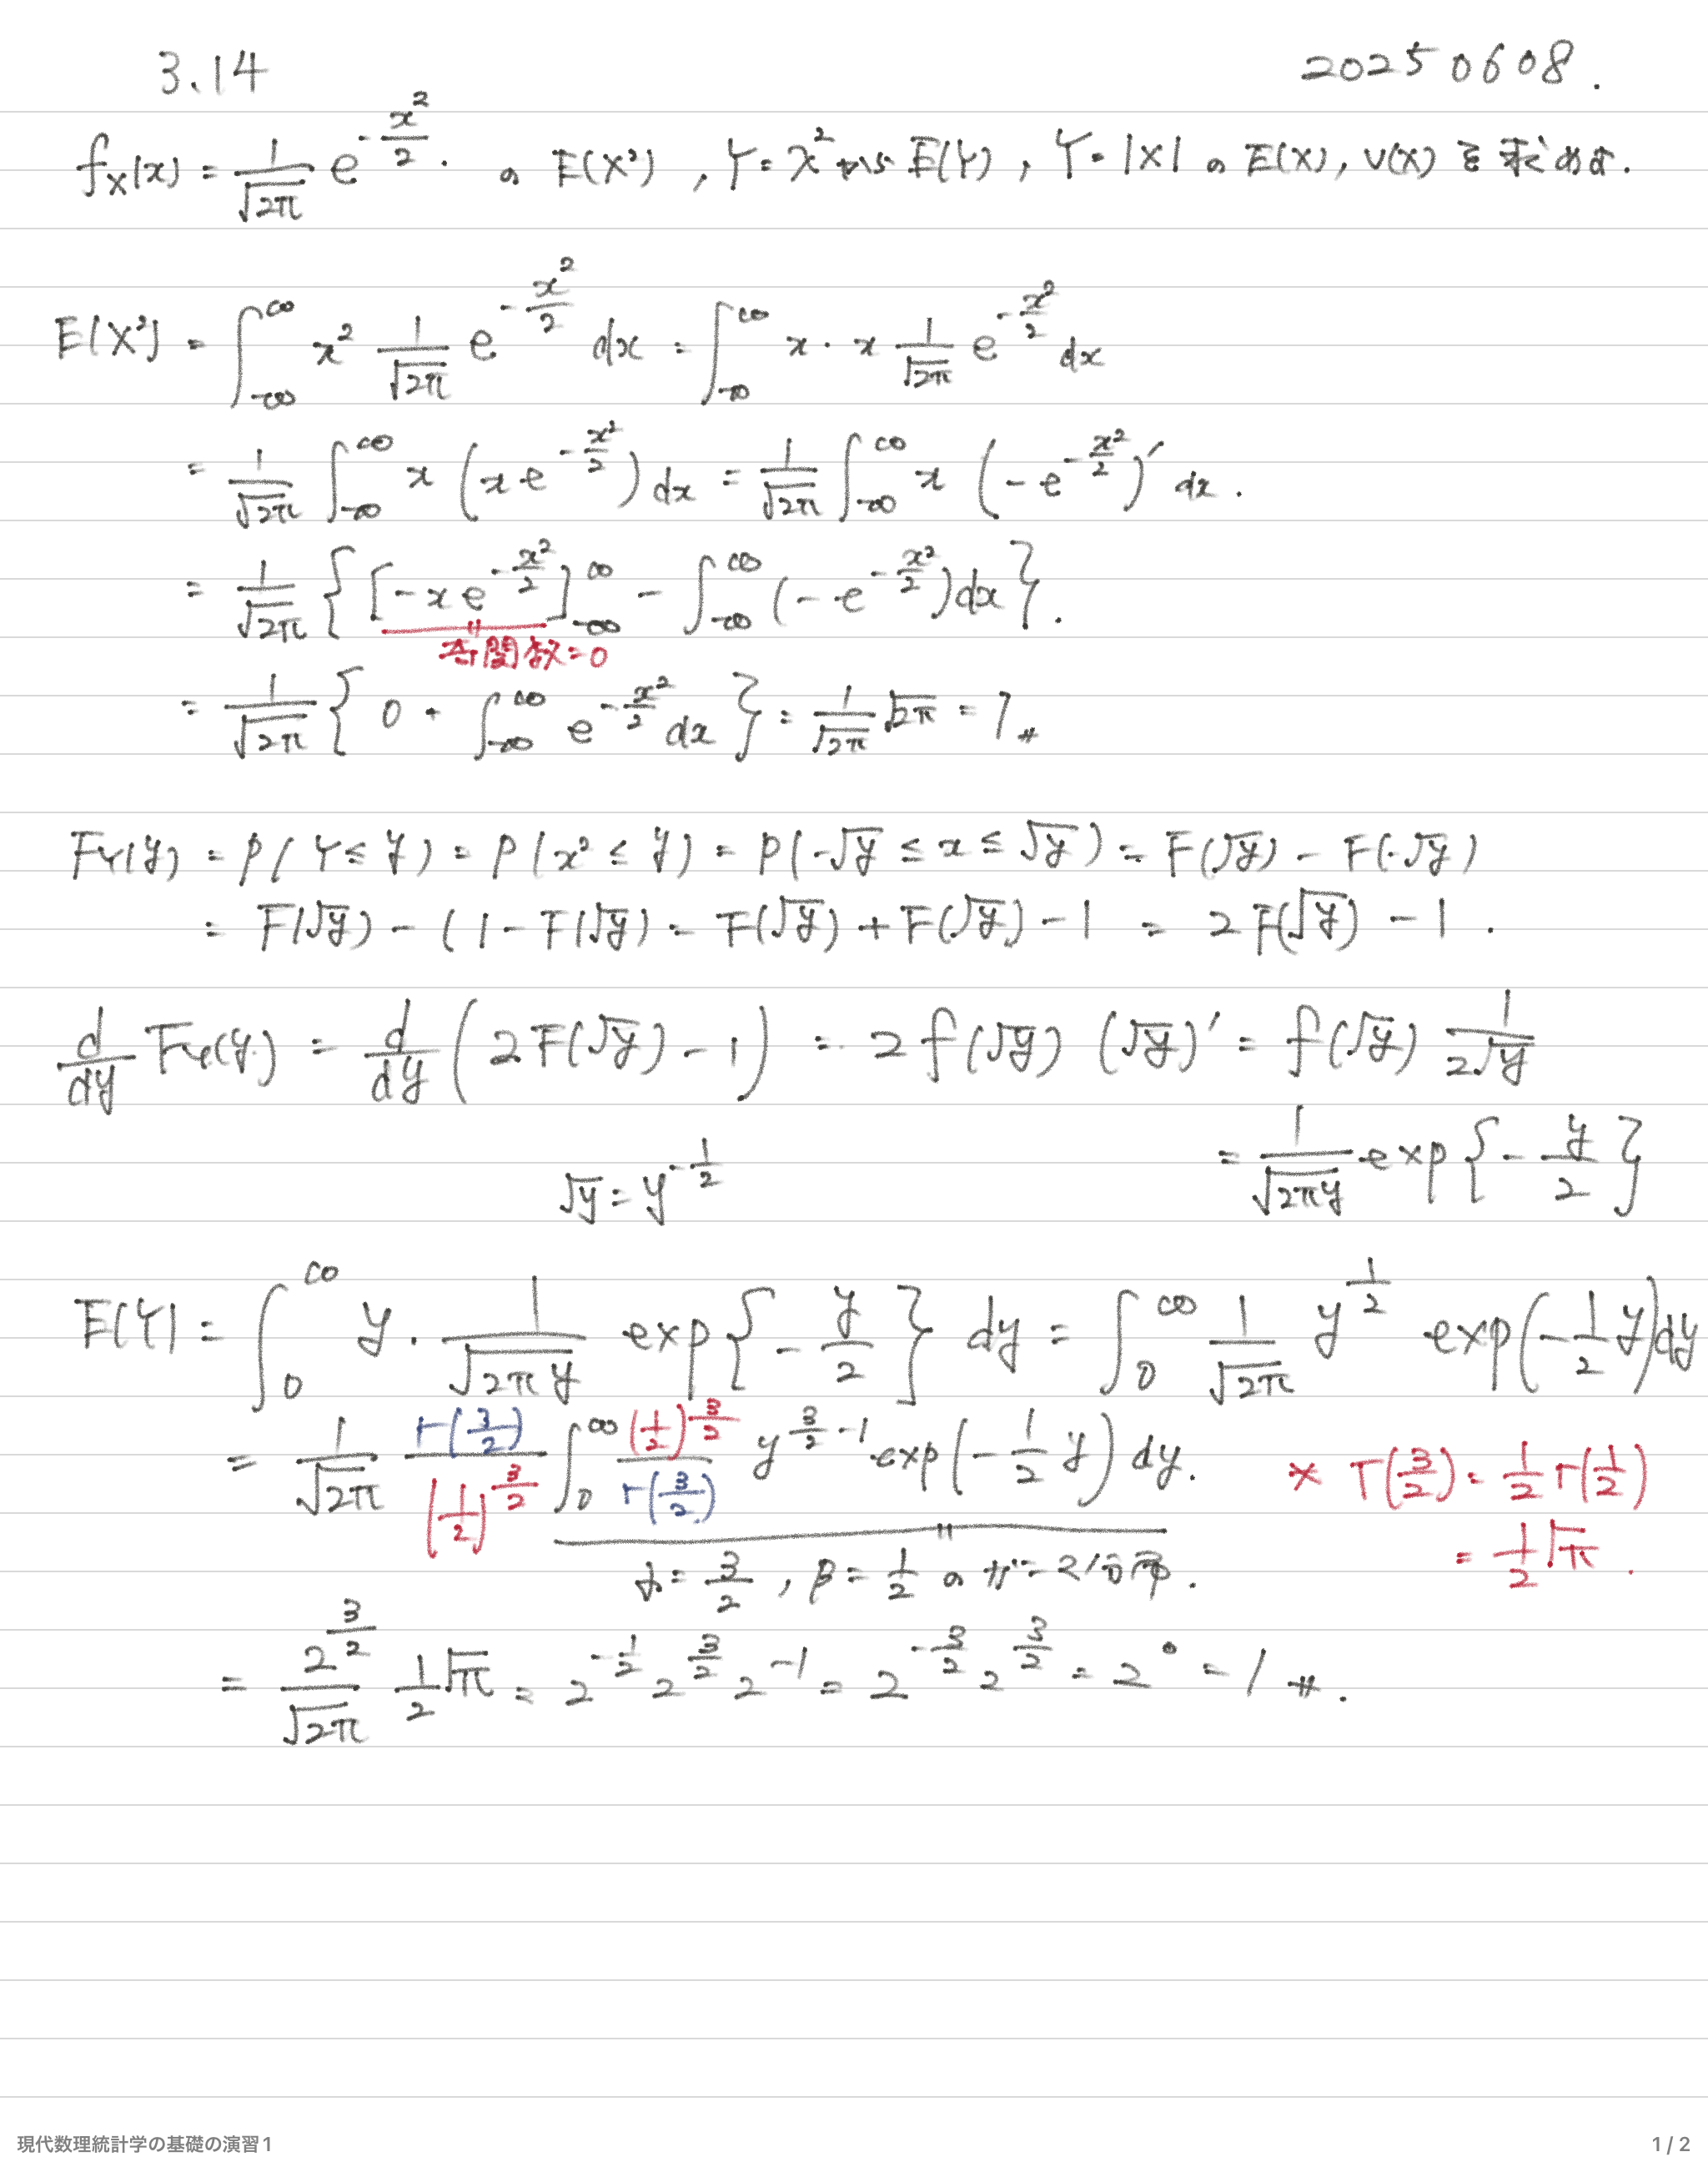 3.14 20250608.
f_X(x) = 1/√2π e^{-x²/2}. の E(X²), Y=x²から E(Y), Y=|X| の E(X), V(X) を求めよ.
E(X²) = ∫_{-∞}^{∞} x² 1/√2π e^{-x²/2} dx = ∫_{-∞}^{∞} x · x 1/√2π e^{-x²/2} dx
= 1/√2π ∫_{-∞}^{∞} x (x e^{-x²/2}) dx = 1/√2π ∫_{-∞}^{∞} x (-e^{-x²/2})' dx.
= 1/√2π { [-x e^{-x²/2}]_{-∞}^{∞} - ∫_{-∞}^{∞} (-e^{-x²/2}) dx }.
奇関数=0
= 1/√2π { 0 + ∫_{-∞}^{∞} e^{-x²/2} dx } = 1/√2π √2π = 1 #
F_Y(y) = P(Y ≤ y) = P(x² ≤ y) = P(-√y ≤ x ≤ √y) = F(√y) - F(-√y)
= F(√y) - (1 - F(√y) = F(√y) + F(√y) - 1 = 2F(√y) - 1.
d/dy F_Y(y) = d/dy (2F(√y) - 1) = 2f(√y) (√y)' = f(√y) 1/2√y
= 1/√2πy exp{-y/2}
√y = y^{-1/2}
E(Y) = ∫_0^∞ y · 1/√2πy exp{-y/2} dy = ∫_0^∞ 1/√2π y^{1/2} exp(-1/2 y) dy
= 1/√2π Γ(3/2)/(1/2)^{3/2} ∫_0^∞ (1/2)^{3/2}/Γ(3/2) y^{3/2-1} exp(-1/2 y) dy. * Γ(3/2) = 1/2 Γ(1/2)
= 1/2 √π.
α = 3/2, β = 1/2 の ガンマ分布.
= 2^{3/2}/√2π 1/2 √π = 2^{-1/2} 2^{3/2} 2^{-1} = 2^{-3/2} 2^{3/2} = 2^0 = 1 #.
現代数理統計学の基礎の演習1 1 / 2